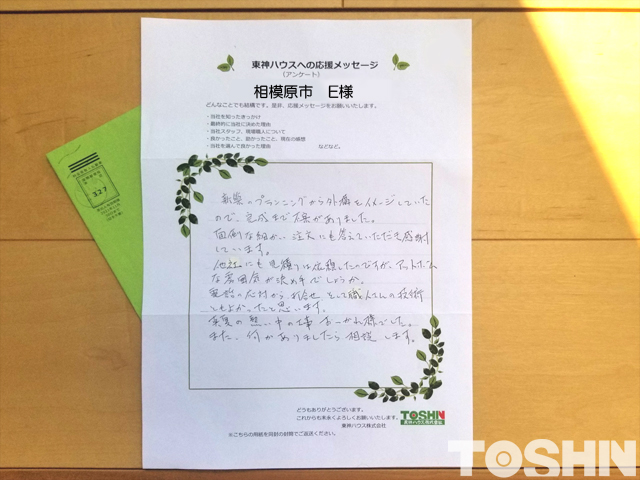 東神ハウスへの応援メッセージ
(アンケート)
相模原市 E様
どんなことでも結構です。是非、応援メッセージをお願いいたします。
・当社を知ったきっかけ
・最終的に当社に決めた理由
・当社スタッフ、現場職人について
・良かったこと、助かったこと、現在の感想
・当社を選んで良かった理由 などなど。
新築のプランニングから外構をイメージしていた
ので、完成まで不安がありました。
面倒な細かい注文にも答えていただき感謝
しています。
他社にも見積りは依頼したのですが、アットホーム
な雰囲気が決め手でしょうか。
電話の応対から打合せ そして職人さんの技術
ともよかったと思います。
真夏の熱い中の仕事 おつかれ様でした。
また、何かありましたら相談します。
どうもありがとうございます。
これからも末永くよろしくお願いいたします。
東神ハウス株式会社
TOSHIN
※こちらの用紙を同封の封筒でご返送ください。
327
TOSHIN